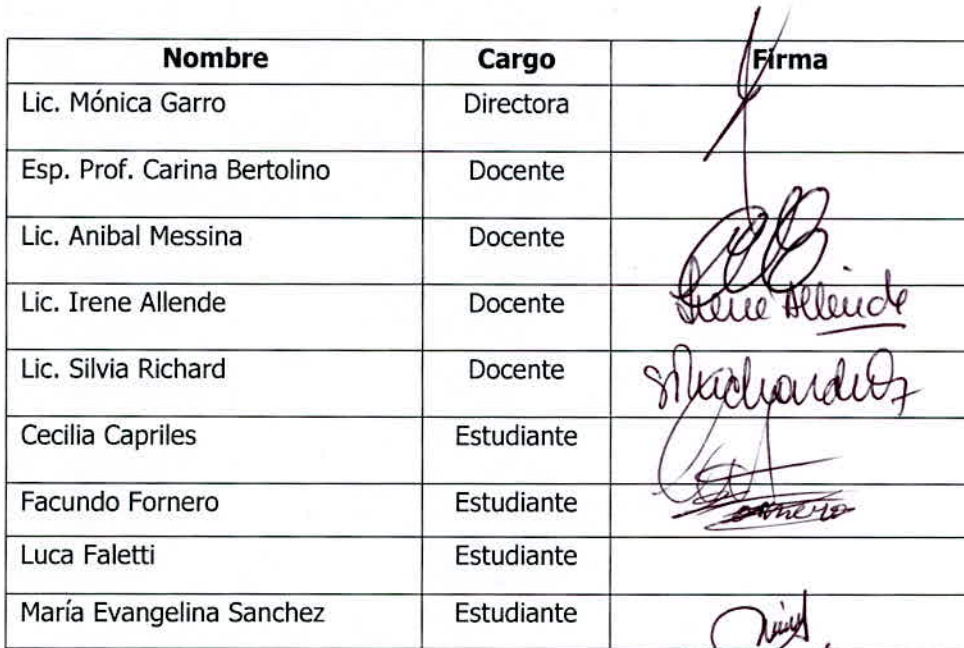 Nombre Cargo Firma
Lic. Mónica Garro Directora
Esp. Prof. Carina Bertolino Docente
Lic. Anibal Messina Docente
Lic. Irene Allende Docente Irene Allende
Lic. Silvia Richard Docente
Cecilia Capriles Estudiante
Facundo Fornero Estudiante
Luca Faletti Estudiante
María Evangelina Sanchez Estudiante